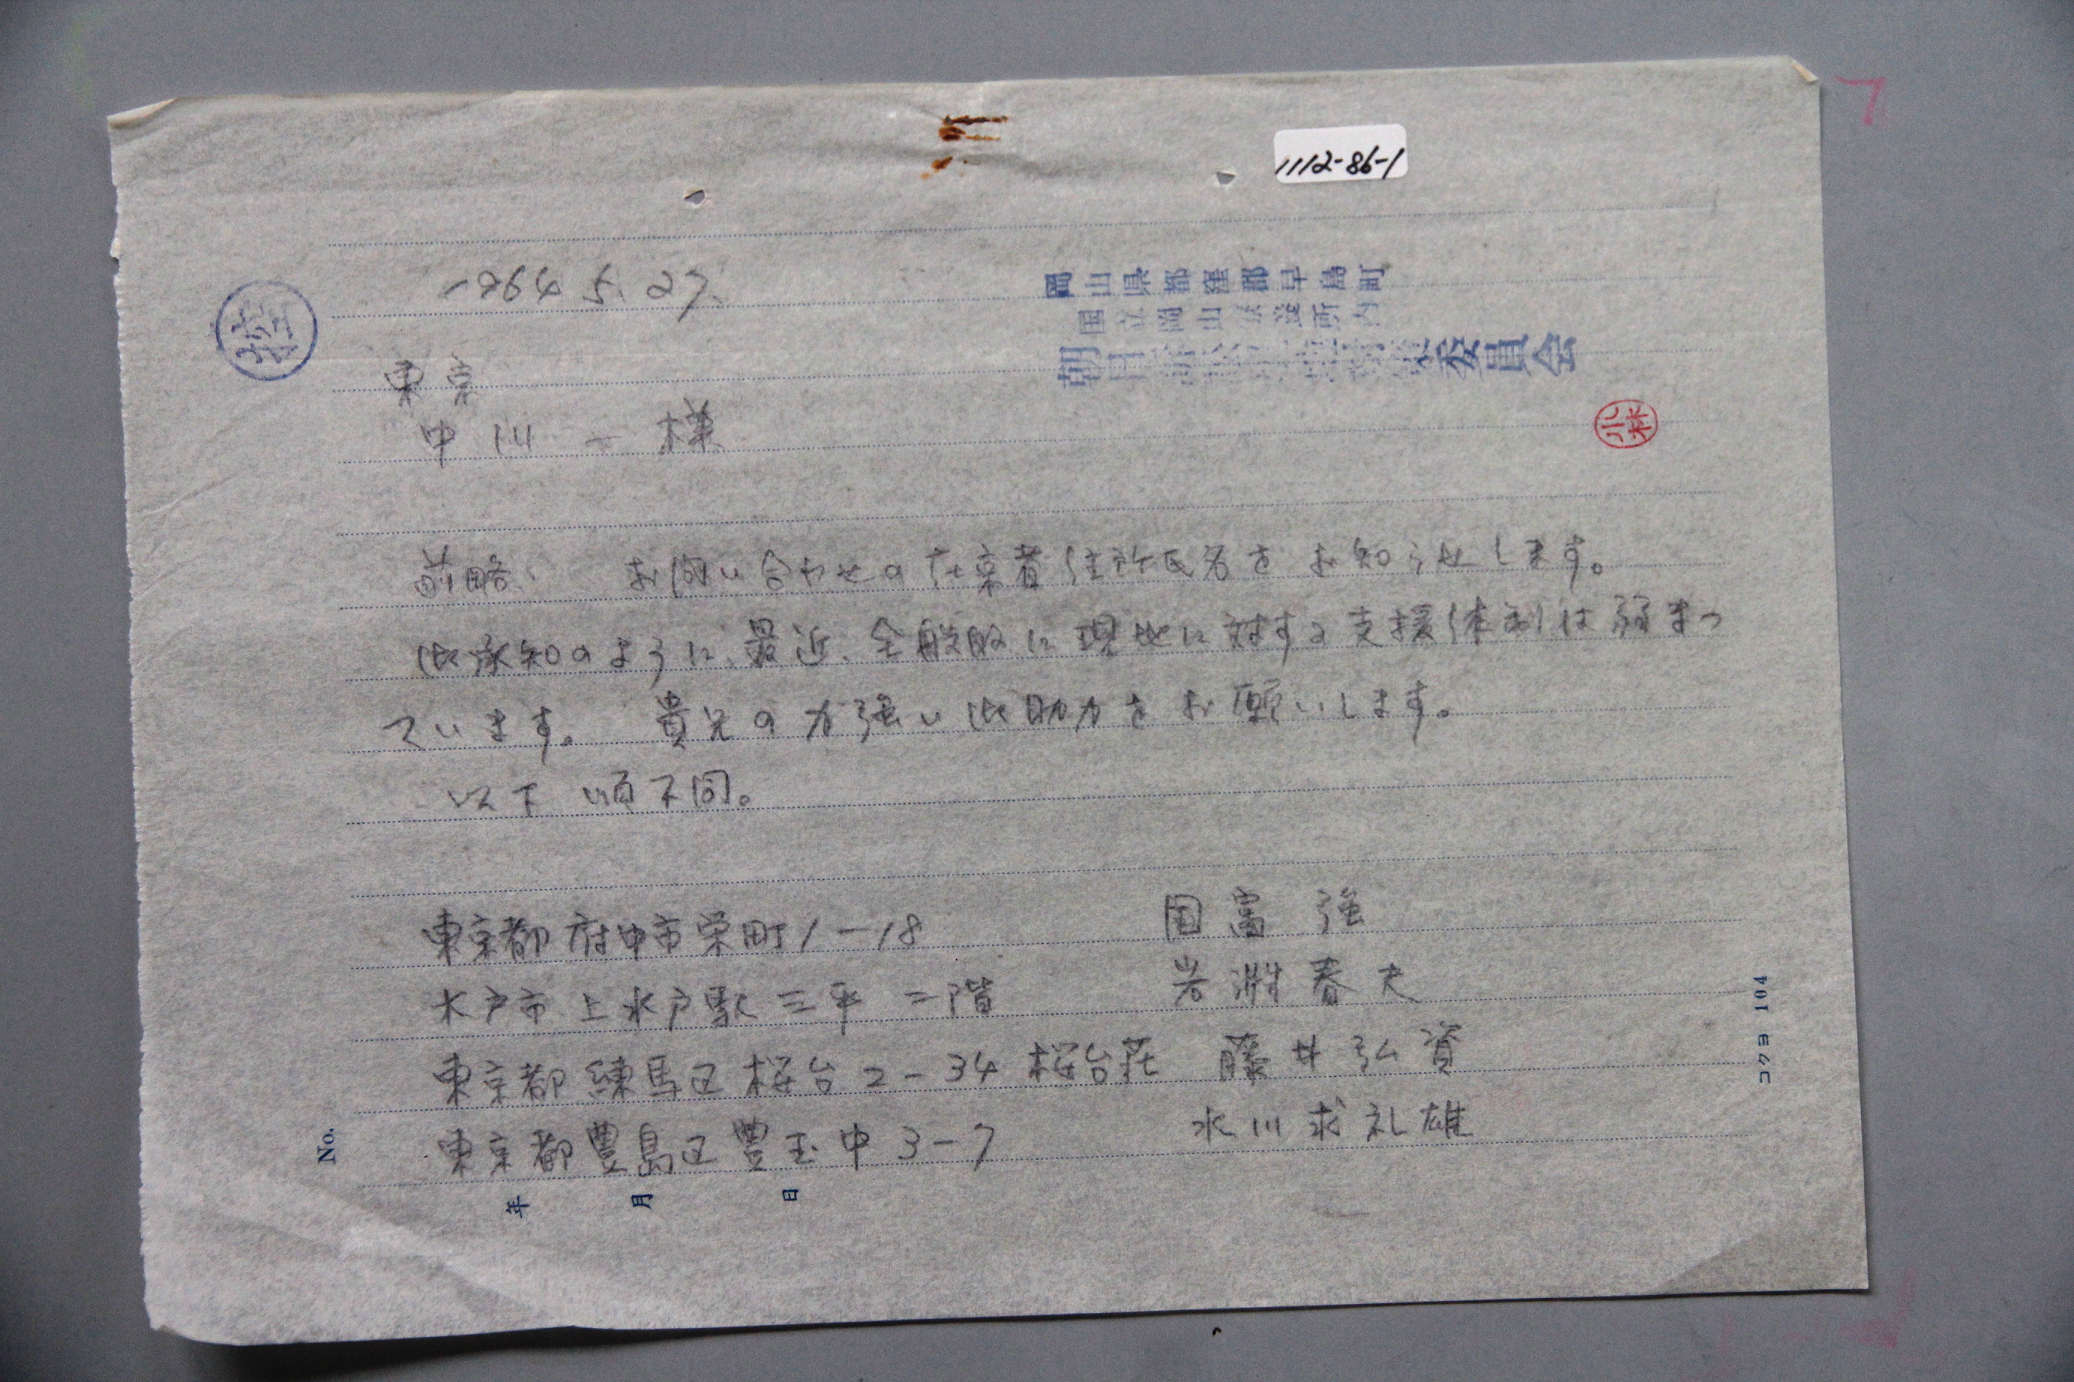 1112-86-1
控
1964 5. 27.
岡山県都窪郡早島町
国立岡山療養所内
朝日 委員会
小林
東京
中川一様
前略、 お問い合わせの在京者住所氏名をお知らせします。
御承知のように、最近、全般的に現地に対する支援体制は弱まっ
ています。 貴兄の力強い御助力をお願いします。
以下 順不同。
東京都府中市栄町1-18 国富 強
水戸市上水戸駅 三平 二階 岩渊春夫
東京都練馬区桜台2-34 桜台荘 藤井弘資
東京都豊島区豊玉中3-7 水川求礼雄
No.
年 月 日
コクヨ 104